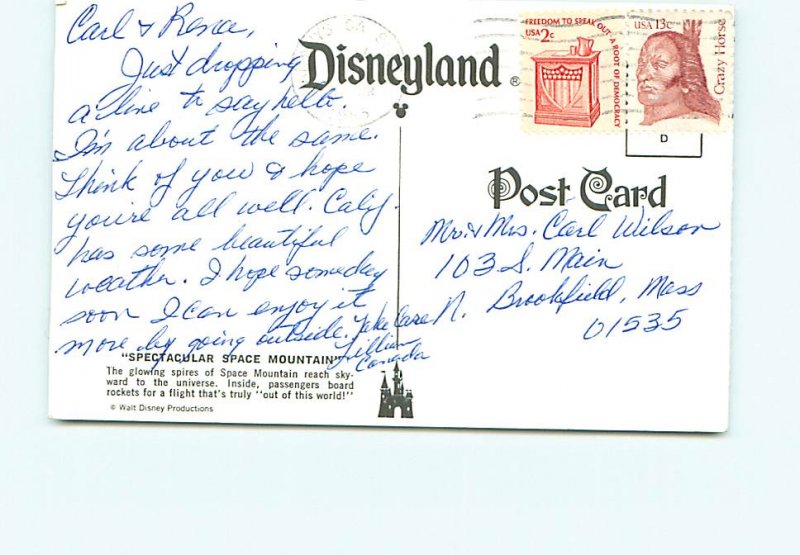 Carl &
Just dropping
a line to say hello.
I'm about the same.
Think of you & hope
you're all well. Calif.
has some beautiful
weather. I hope someday
soon I can enjoy it
more by going outside. Take Care
Lillian
Canada
Disneyland ®
FREEDOM TO SPEAK OUT A ROOT OF DEMOCRACY
USA 2c
USA 13c
Crazy Horse
D
Post Card
Mr. & Mrs. Carl Wilson
103 S. Main
N. Brookfield, Mass
01535
"SPECTACULAR SPACE MOUNTAIN"
The glowing spires of Space Mountain reach sky-
ward to the universe. Inside, passengers board
rockets for a flight that's truly "out of this world!"
© Walt Disney Productions